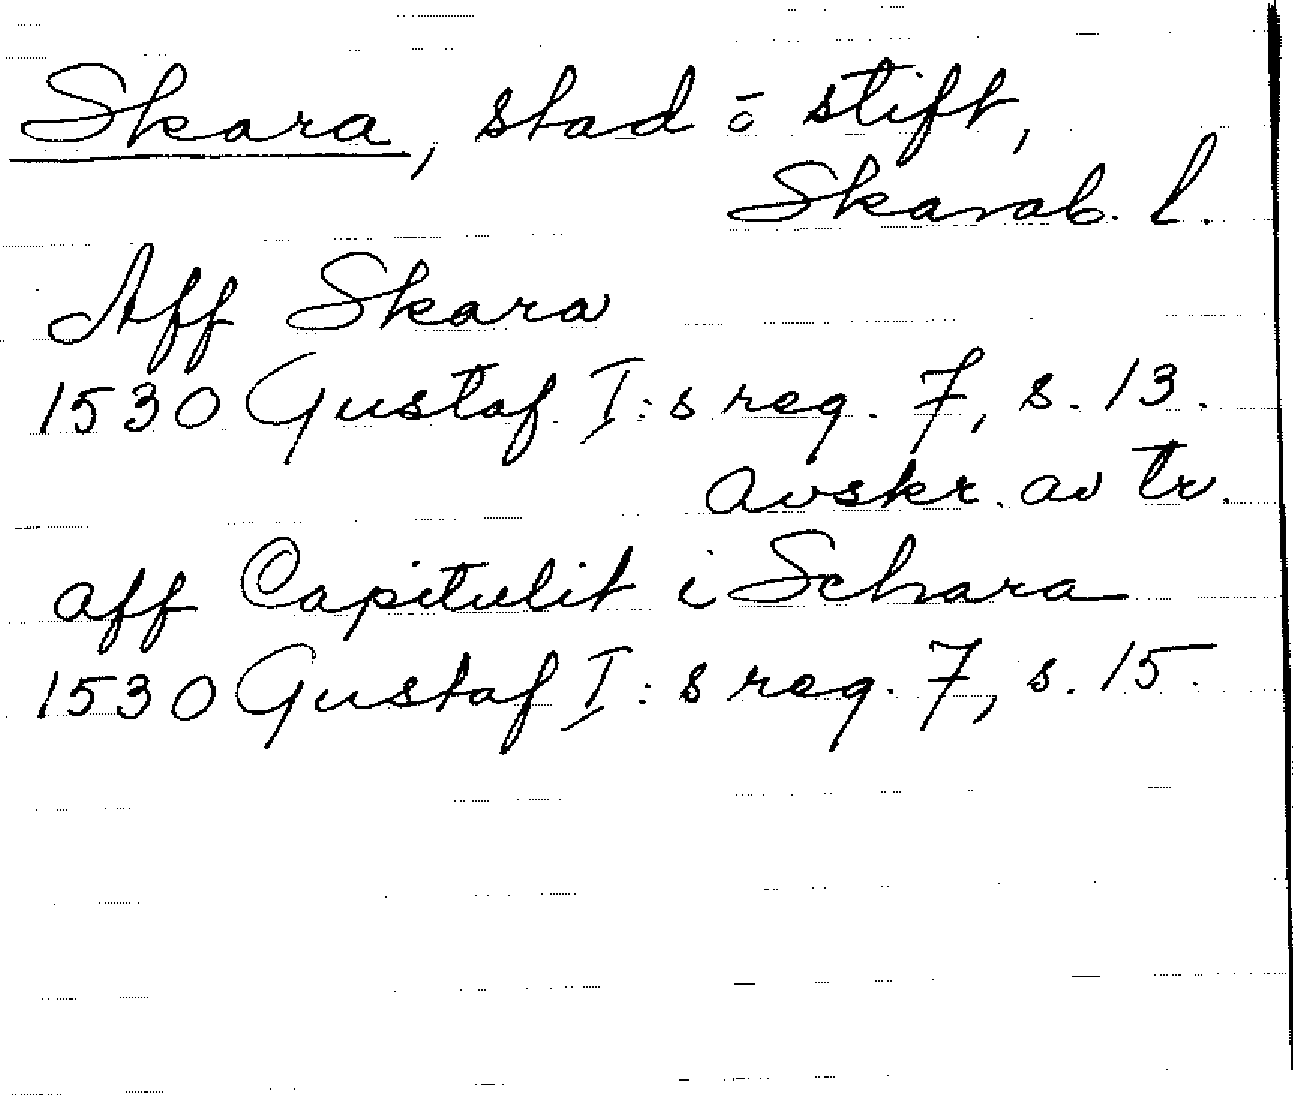 Skara, stad o stift,
Skarab. l.
Aff Skara
1530 Gustaf I:s reg. 7, s. 13.
avskr. av tr.
aff Capitulit i Schara
1530 Gustaf I:s reg. 7, s. 15.